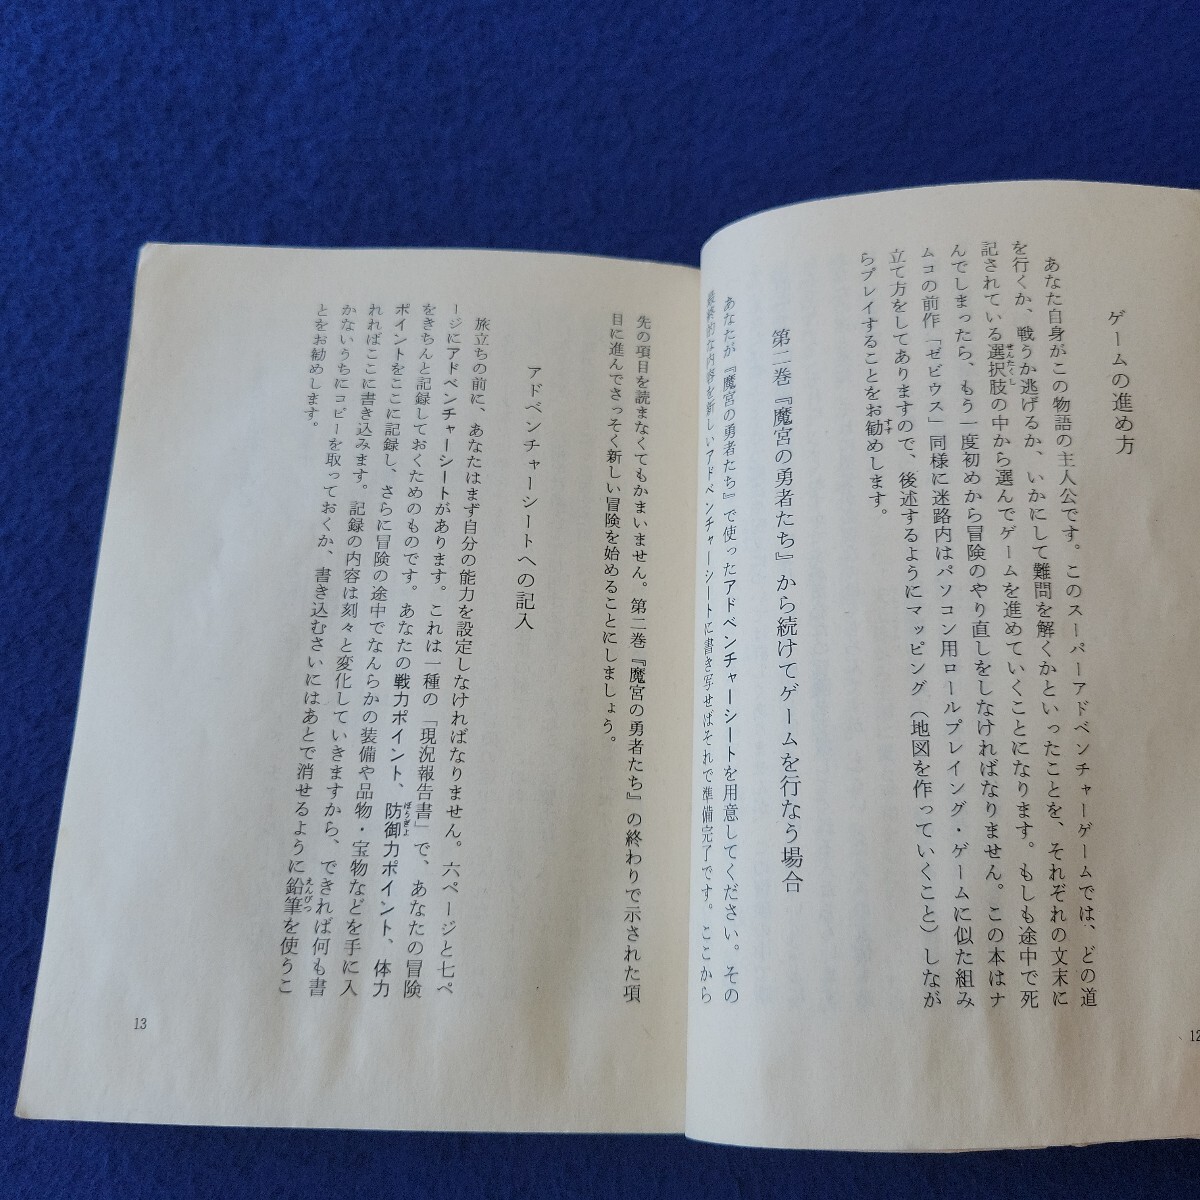 ゲームの進め方
あなた自身がこの物語の主人公です。このスーパーアドベンチャーゲームでは、どの道
を行くか、戦うか逃げるか、いかにして難問を解くかといったことを、それぞれの文末に
記されている選択肢の中から選んでゲームを進めていくことになります。もしも途中で死
せんたくし
んでしまったら、もう一度初めから冒険のやり直しをしなければなりません。この本はナ
ムコの前作「ゼビウス」同様に迷路内はパソコン用ロールプレイング・ゲームに似た組み
立て方をしてありますので、後述するようにマッピング（地図を作っていくこと）しなが
らプレイすることをお勧めします。
すす
第二巻『魔宮の勇者たち』から続けてゲームを行なう場合
あなたが『魔宮の勇者たち』で使ったアドベンチャーシートを用意してください。その
最終的な内容を新しいアドベンチャーシートに書き写せばそれで準備完了です。ここから
12
先の項目を読まなくてもかまいません。第二巻『魔宮の勇者たち』の終わりで示された項
目に進んでさっそく新しい冒険を始めることにしましょう。
アドベンチャーシートへの記入
旅立ちの前に、あなたはまず自分の能力を設定しなければなりません。六ページと七ペ
ージにアドベンチャーシートがあります。これは一種の「現況報告書」で、あなたの冒険
をきちんと記録しておくためのものです。あなたの戦力ポイント、防御力ポイント、体力
ぼうぎよ
ポイントをここに記録し、さらに冒険の途中でなんらかの装備や品物・宝物などを手に入
れればここに書き込みます。記録の内容は刻々と変化していきますから、できれば何も書
かないうちにコピーを取っておくか、書き込むさいにはあとで消せるように鉛筆を使うこ
えんぴつ
とをお勧めします。
13